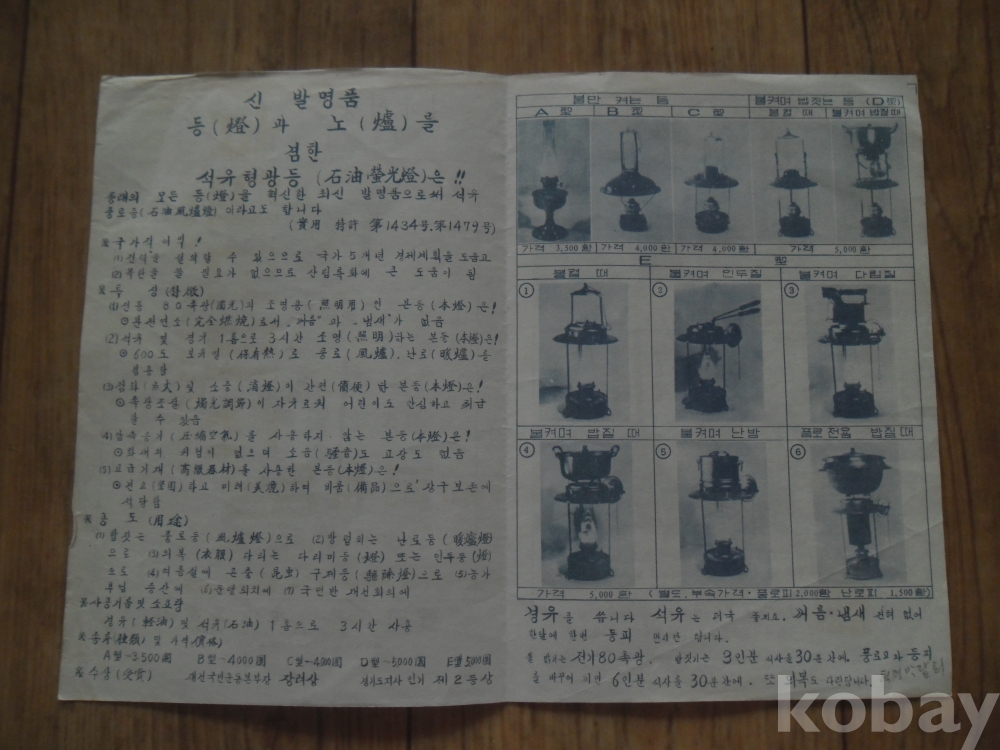 신 발명품
등(燈)과 노(爐)를
겸한
석유형광등 (石油·螢光燈)은!!
종래의 모든 등(燈)을 혁신한 최신 발명품으로써 석유
풍로등(石油風爐燈)이라고도 합니다
(實用 特許 第1434号.第1479号)
※국가적 이익!
(1)전력을 절약할 수 있으므로 국가5개년 경제계획을 도웁고
(2)목탄을 쓸 필요가 없으므로 산림록화에 큰 도움이 됨
※특 성(特徵)
(1)전등 80촉광(燭光)의 조명용(照明用)인 본등(本燈)은!
◎완전연소(完全燃燒)로서 "끄름"과 "냄새"가 없음
(2)석유 및 경유 1홉으로 3시간 조명(照明)하는 본등(本燈)은!
◎600도 보유열(保有熱)로 풍로(風爐),난로(暖爐)를
겸용함
(3)점화(点火) 및 소등(消燈)이 간편(簡便)한 본등(本燈)은!
◎촉광조절(燭光調節)이 자유로워 어린이도 안심하고 취급
할 수 있음
(4)압축공기(圧縮空氣)를 사용하지 않는 본등(本燈)은!
◎화재의 위험이 없으며 소음(騷音)도 고장도 없음
(5)고급기재(高級器材)를 사용한 본등(本燈)은!
◎견고(堅固)하고 미려(美麗)하며 비품(備品)으로 장구보존에
적당함
※용 도(用途)
(1)밥짓는 풍로등(風爐燈)으로 (2)방덥히는 난로등(暖爐燈)
으로 (3)의복(衣服) 다리는 다리미등(燈) 또는 인두등(燈)
으로 (4)여름철에 곤충(昆虫) 구제등(驅除燈)으로 (5)농가
부업 증산에 (6)농촌회의에 (7)국민반 재건회의에
※사용기름및 소요량
경유(軽油) 및 석유(石油) 1홉으로 3시간 사용
※종류(種類) 및 가격(價格)
A형~3,500圜 B형~4000圜 C형~4000圜 D형~5000圜 E형5000圜
※수상(受賞) 재건국민운동본부장 장려상 경기도지사인기 제2등상
불만 켜는 등 불켜며 밥짓는 등 (D型)
A 型 B 型 C 型 불켤 때 불켜며 밥질때
가격 3,500환 가격 4,000환 가격 4,000환 가격 5,000환
E 型
불켤 때 불켜며 인두질 불켜며 다림질
① ② ③
불켜며 밥질 때 불켜며 난방 풍로전용 밥질때
④ ⑤ ⑥
가격 5,000환 (별도,부속가격·풍로피2,000환 난로피1,500환)
경유를 씁니다 석유는 더욱 좋지요. 써름·냄새 전혀 없어
한달에 한번 등피 면 됩니다.
불 밝기는 전기80촉광. 밥짓기는 3인분 식사를30분간에. 풍로피와 등피
를 바꾸어 끼면 6인분 식사를 30분간에. 또 의복도 다린답니다.
kobay